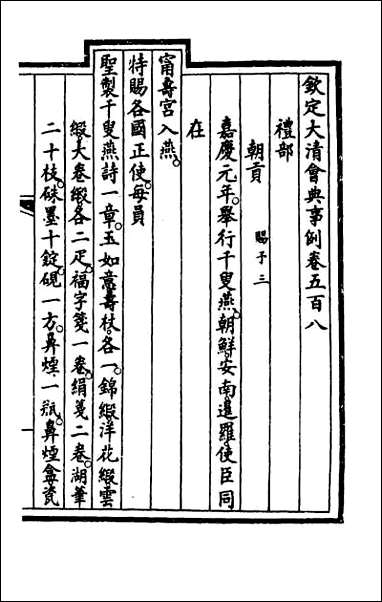 欽定大清會典事例卷五百八
禮部
朝貢 賜予三
嘉慶元年舉行千叟燕朝鮮安南暹羅使臣同
在
甯壽宮入燕
特賜各國正使每員
聖製千叟燕詩一章玉如意壽杖各一錦緞洋花緞雲
緞大卷緞各二疋福字箋一卷絹箋二卷湖筆
二十枝硃墨十錠硯一方鼻煙一瓶鼻煙盒瓷